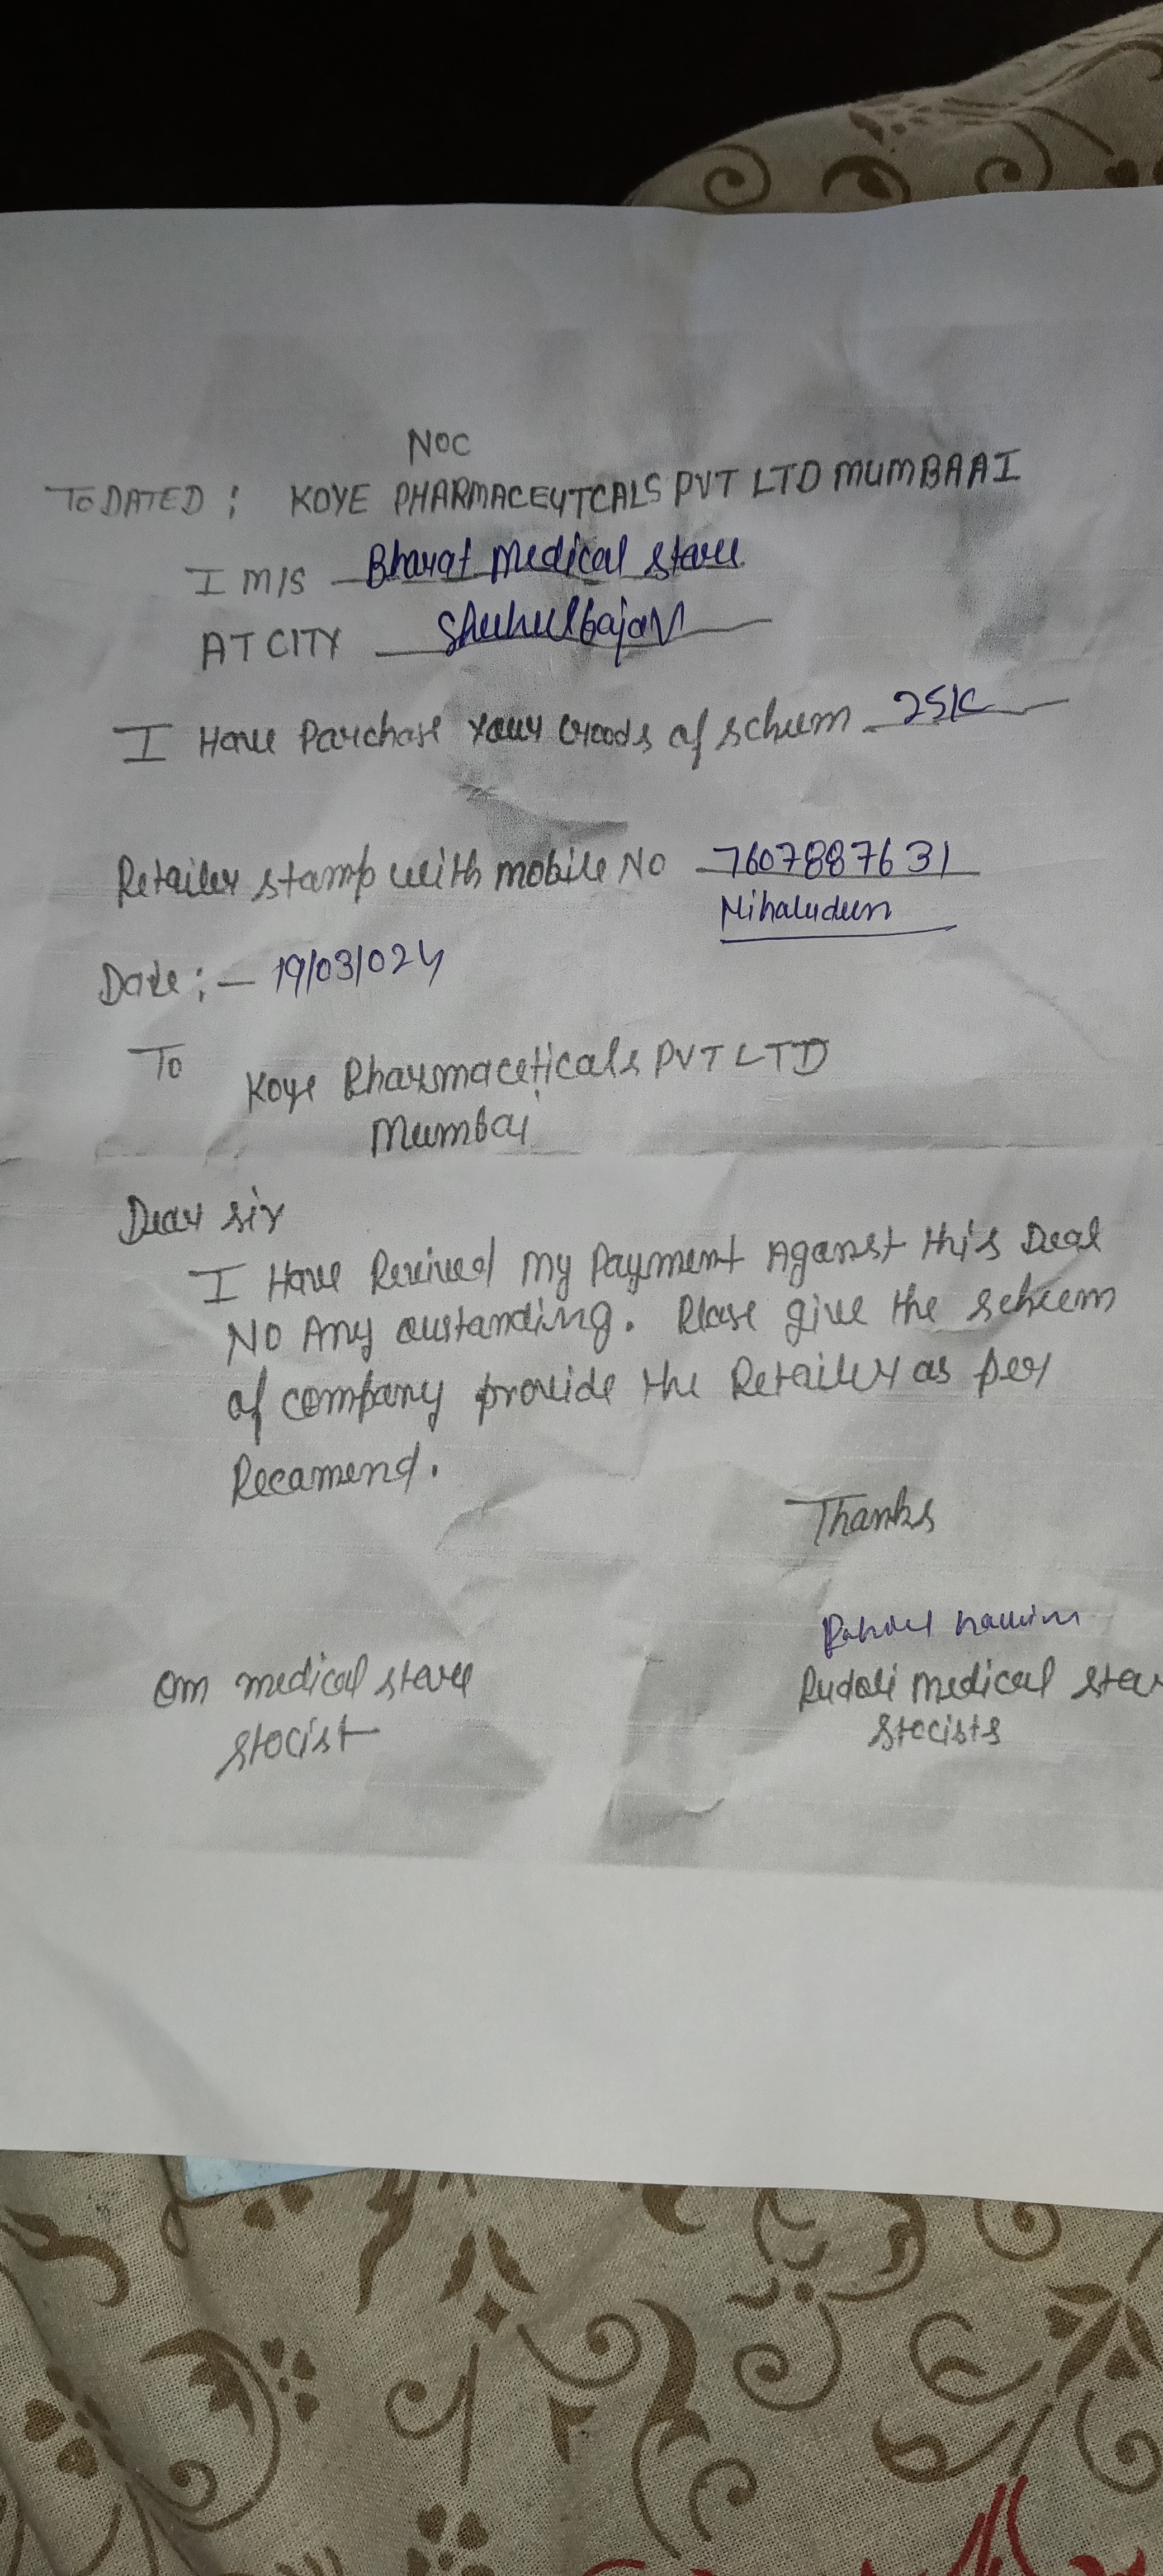 NOC
TO DATED : KOYE PHARMACEUTCALS PVT LTD MUMBAAI
I M/S Bharat Medical Store
AT CITY Shukulbajar
I Have Parchase Your Goods of scheem 25K
Retailer stamp with mobile No 7607887631
Nihaludeen
Date : - 19/03/024
To
Koye Pharmaceticals PVT LTD
Mumbai
Dear sir
I Have Recived My Payment Aganst this Deal
NO Any oustanding. Please give the scheem
of company provide the Retailer as per
Recamend.
Thanks
Om medical store
Rudoli Medical Stor
stocist
Stocists